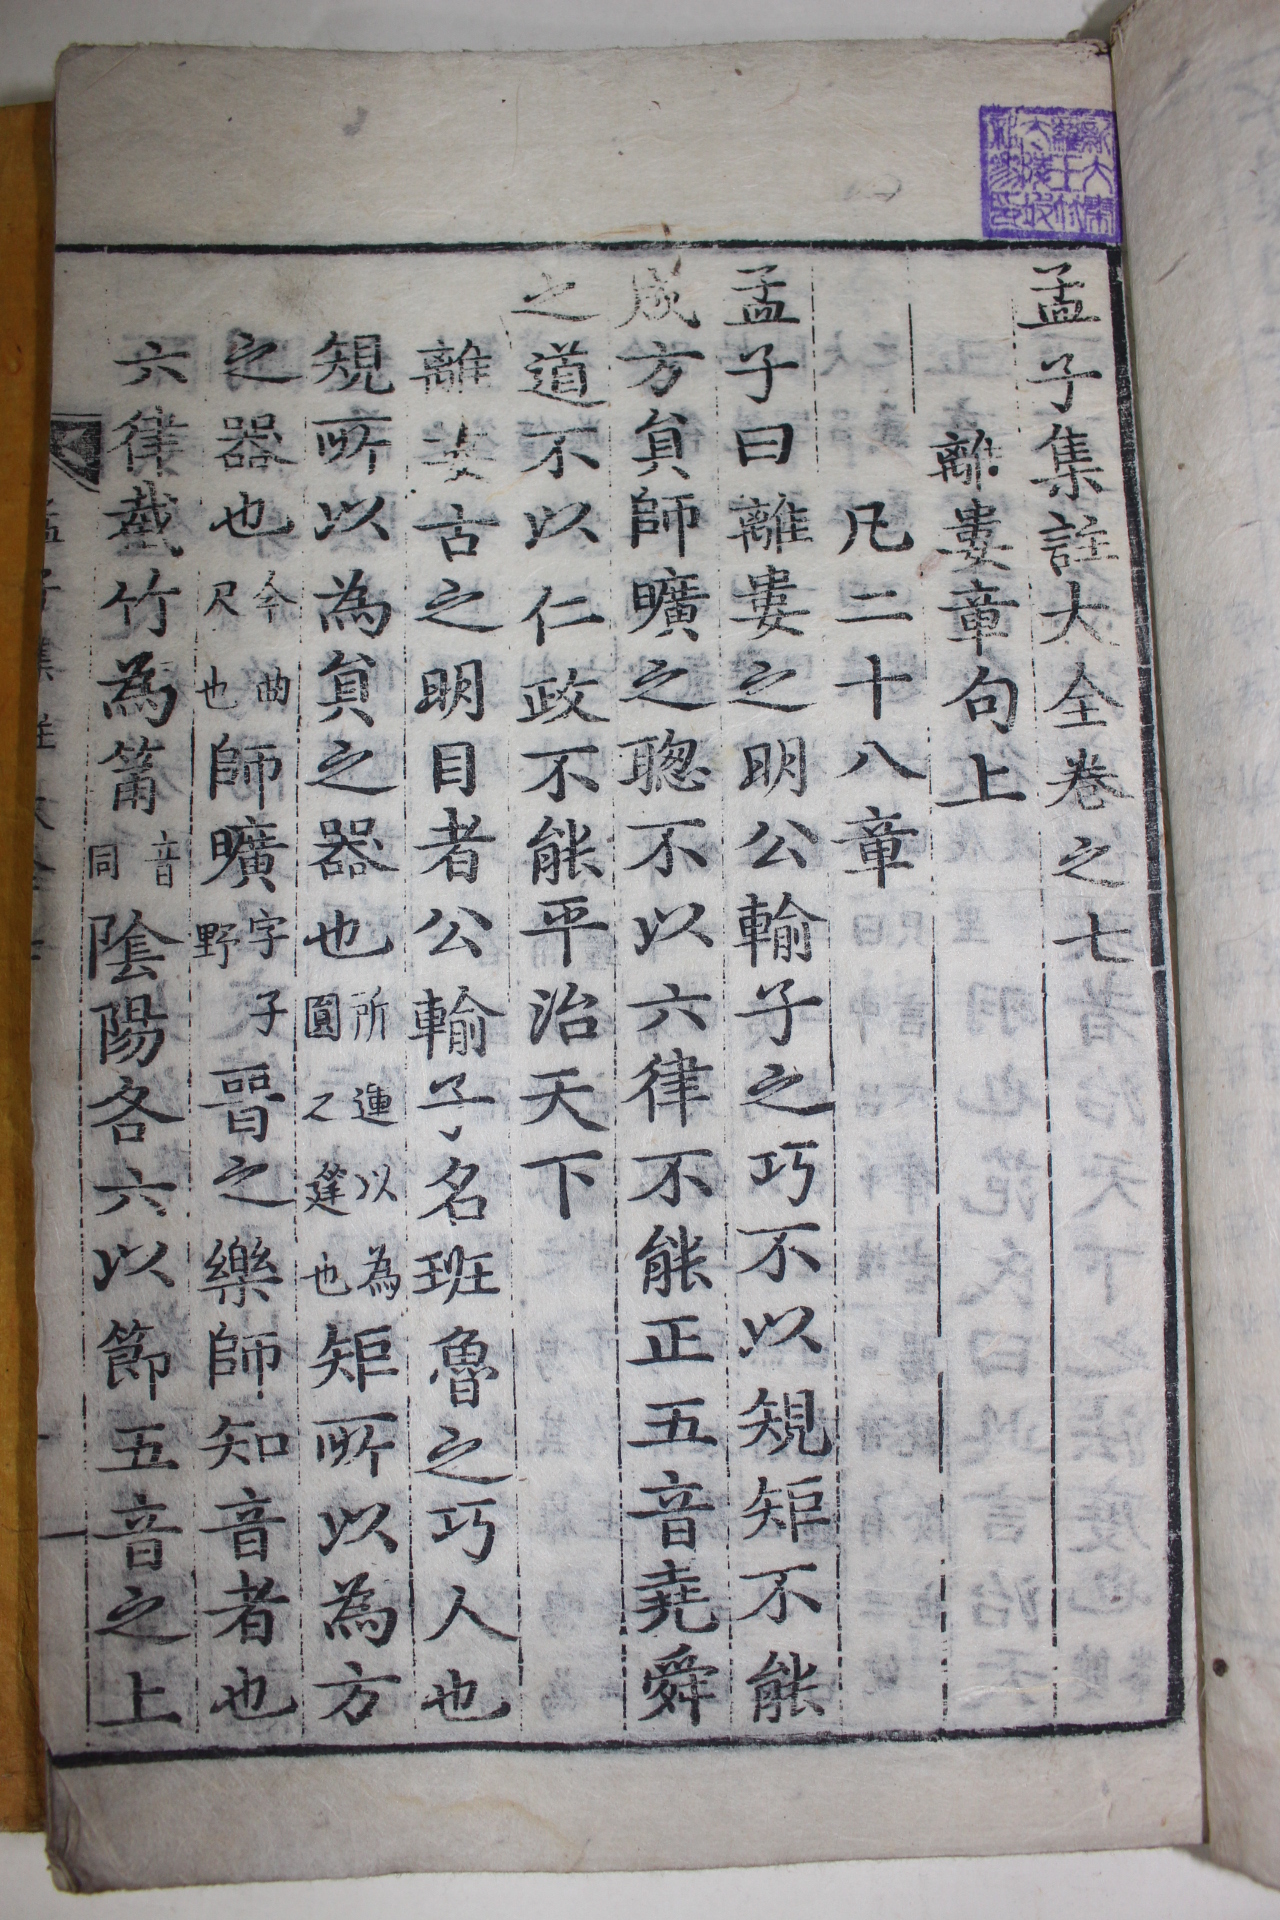 孟子集註大全卷之七
離婁章句上
凡二十八章
孟子曰離婁之明公輸子之巧不以規矩不能
成方貟師曠之聰不以六律不能正五音堯舜
之道不以仁政不能平治天下
離婁古之明目者公輸子名班魯之巧人也
規所以為貟之器也所運以為圓之筳也矩所以為方
之器也今曲尺也師曠字子野晉之樂師知音者也
六律截竹為筩音同陰陽各六以節五音之上